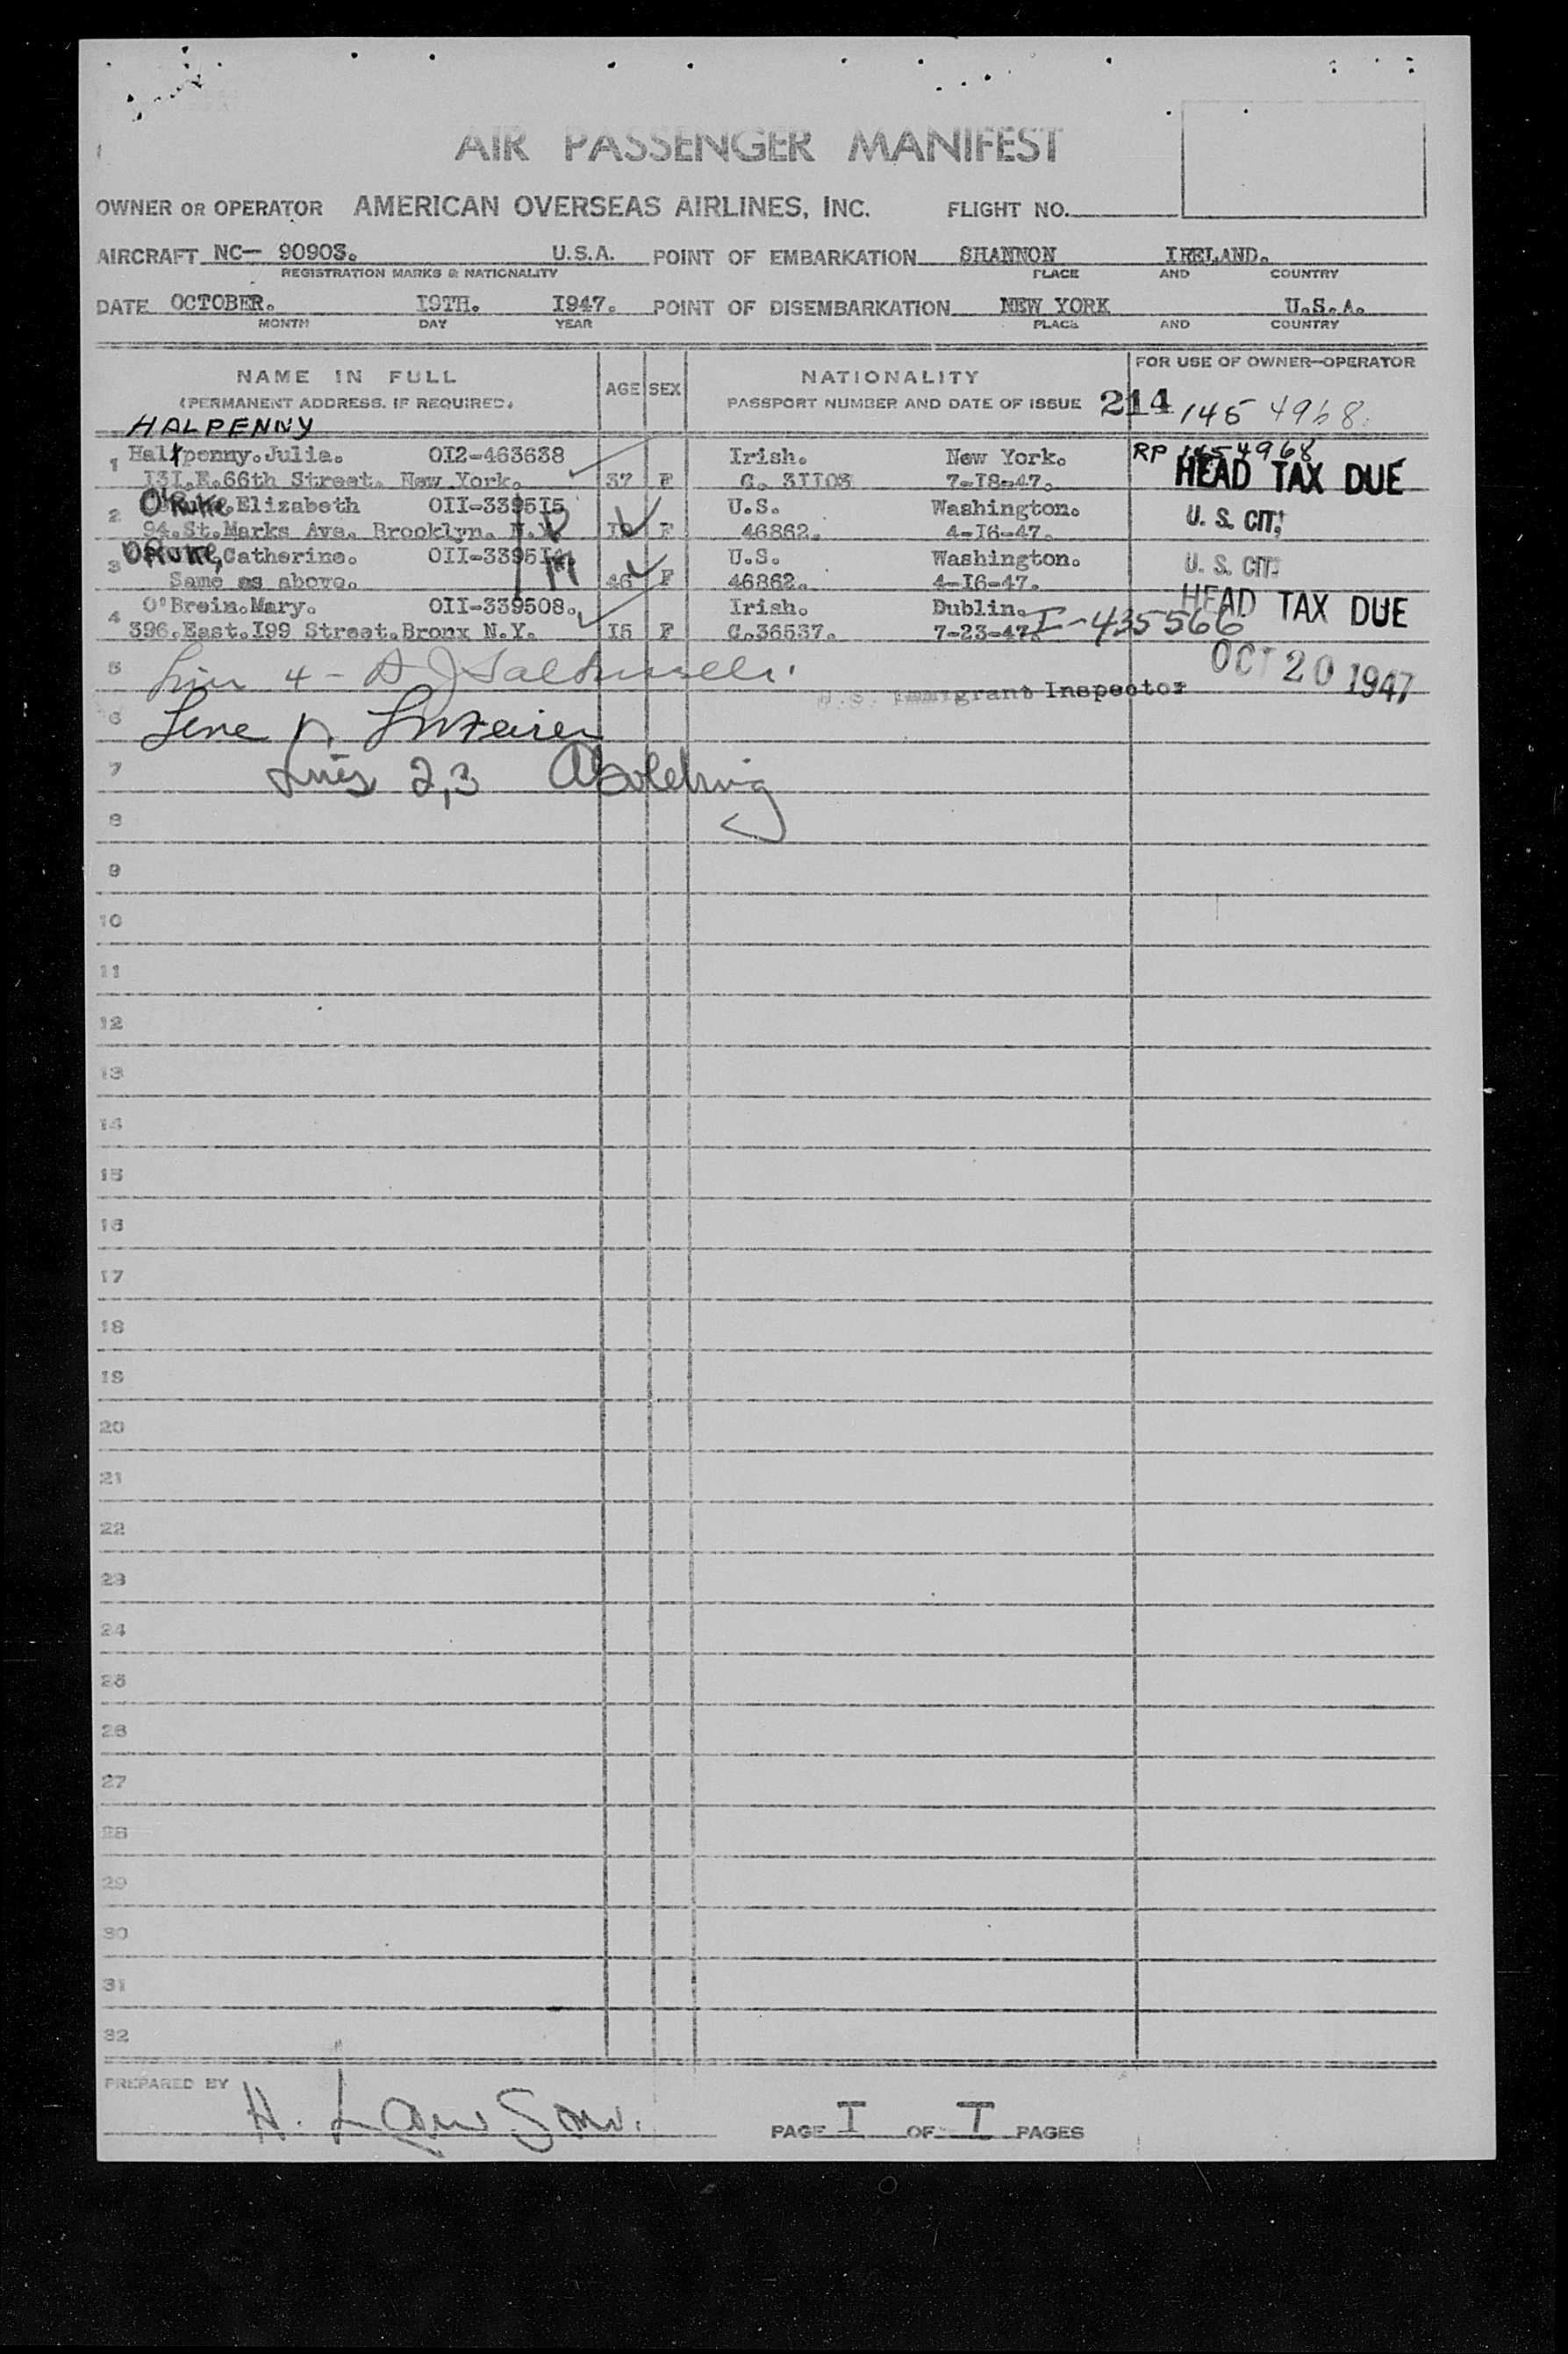 AIR PASSENGER MANIFEST
OWNER OR OPERATOR AMERICAN OVERSEAS AIRLINES, INC. FLIGHT NO.
AIRCRAFT NC- 90903. U.S.A. POINT OF EMBARKATION SHANNON IRELAND.
REGISTRATION MARKS & NATIONALITY PLACE AND COUNTRY
DATE OCTOBER. I9TH. I947. POINT OF DISEMBARKATION NEW YORK U.S.A.
MONTH DAY YEAR PLACE AND COUNTRY
NAME IN FULL AGE SEX NATIONALITY FOR USE OF OWNER-OPERATOR
(PERMANENT ADDRESS, IF REQUIRED) PASSPORT NUMBER AND DATE OF ISSUE 214 145 4968
HALPENNY
1 Halfpenny.Julia. OI2-463638 Irish. New York. RP 1454968
I3I.E.66th Street. New York. 37 F C. 3II03 7-I8-47. HEAD TAX DUE
2 Elizabeth OII-3395I5 U.S. Washington. U. S. CIT.
94.St.Marks Ave. Brooklyn. N.Y. F 46862. 4-I6-47.
3 Catherine. OII-3395I4 U.S. Washington. U. S. CIT.
Same as above. 46 F 46862. 4-I6-47.
4 O'Brein.Mary. OII-339508. Irish. Dublin. HEAD TAX DUE
396.East.I99 Street.Bronx N.Y. I5 F C.36537. 7-23-47. I-435566
5 Line 4 - OCT 20 1947
U.S. Immigrant Inspector
6
7 Lines 2,3
8
9
10
11
12
13
14
15
16
17
18
19
20
21
22
23
24
25
26
27
28
29
30
31
32
PREPARED BY H. Lawson. PAGE I OF I PAGES